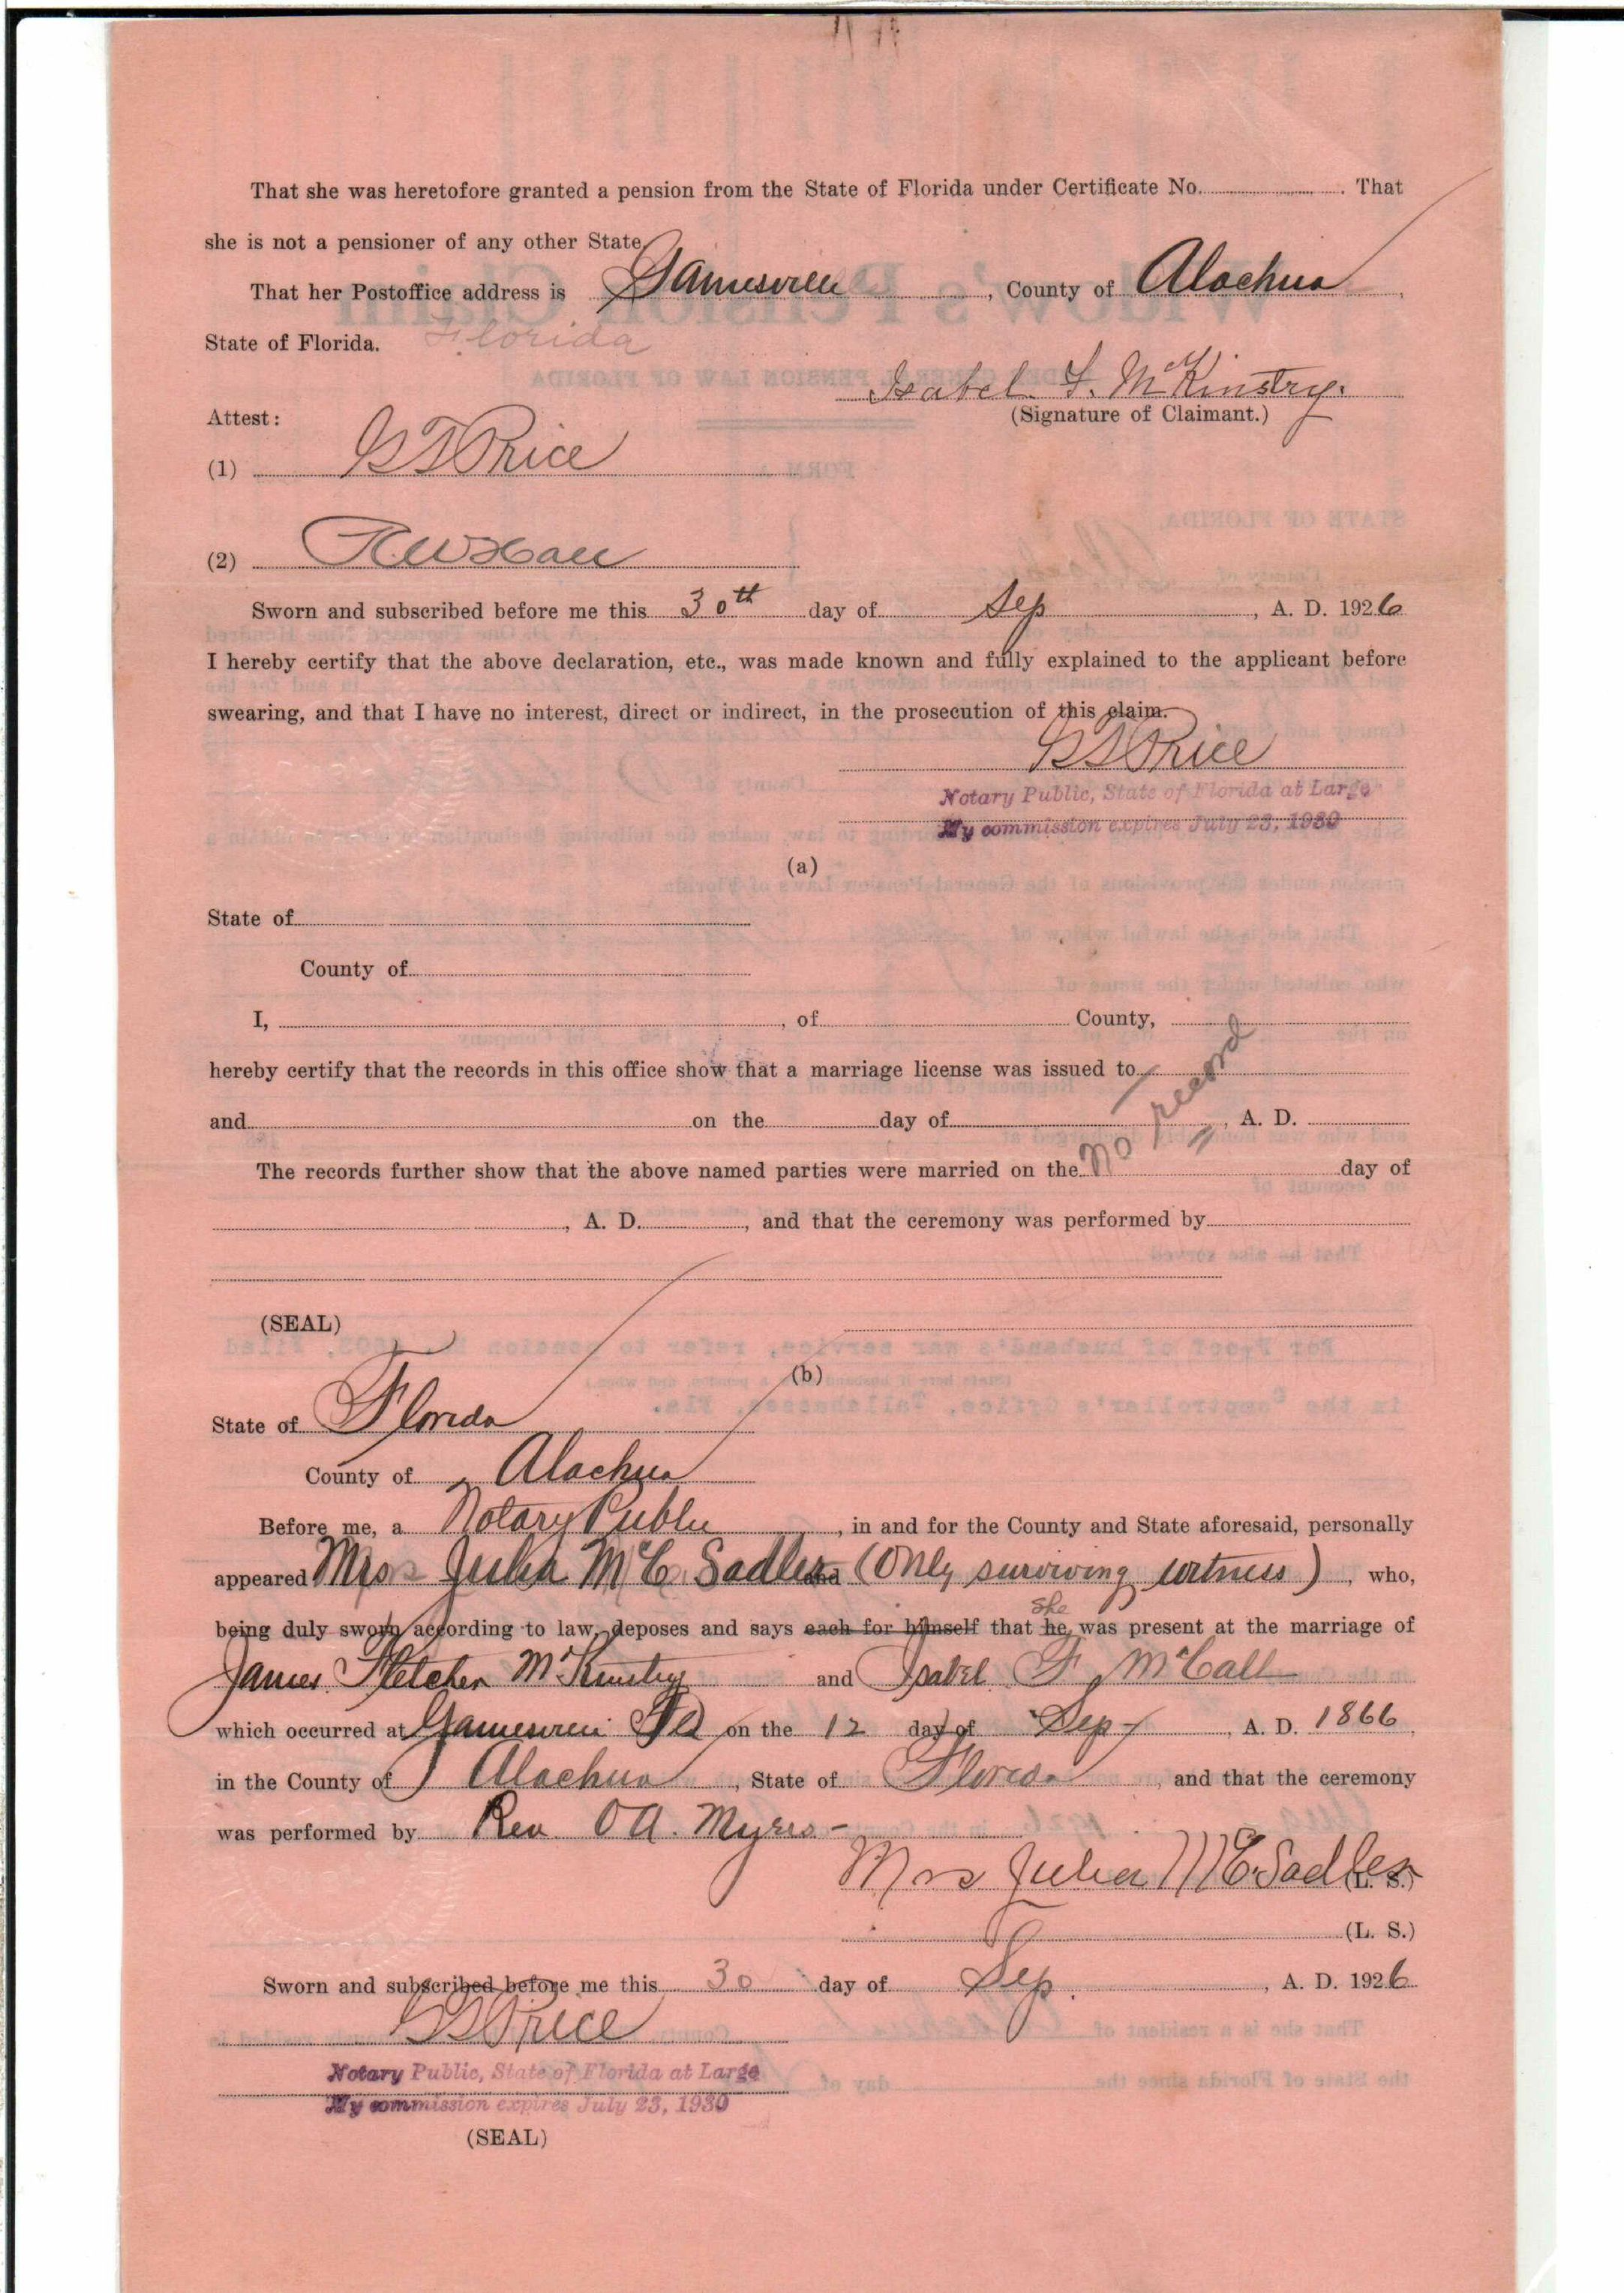 That she was heretofore granted a pension from the State of Florida under Certificate No. . That
she is not a pensioner of any other State.
That her Postoffice address is Gainesville, County of Alachua,
State of Florida. Florida
Isabel F. McKinstry.
(Signature of Claimant.)
Attest:
(1) Price
(2)
Sworn and subscribed before me this 30th day of Sep, A. D. 1926
I hereby certify that the above declaration, etc., was made known and fully explained to the applicant before
swearing, and that I have no interest, direct or indirect, in the prosecution of this claim.
Price
Notary Public, State of Florida at Large
My commission expires July 23, 1930
(a)
State of
County of
I, , of County,
hereby certify that the records in this office show that a marriage license was issued to
and on the day of , A. D.
no record
The records further show that the above named parties were married on the day of
, A. D. , and that the ceremony was performed by
(SEAL)
(b)
State of Florida
County of Alachua
Before me, a Notary Public, in and for the County and State aforesaid, personally
appeared Mrs Julia McC. Sadler and (Only surviving witness), who,
being duly sworn according to law, deposes and says each for himself that he she was present at the marriage of
James Fletcher McKinstry and Isabel F McCall
which occurred at Gainesville Fla on the 12 day of Sep, A. D. 1866,
in the County of Alachua, State of Florida, and that the ceremony
was performed by Rev O A. Myers -
Mrs Julia McC. Sadler (L. S.)
(L. S.)
Sworn and subscribed before me this 30 day of Sep., A. D. 1926.
Price
Notary Public, State of Florida at Large
My commission expires July 23, 1930
(SEAL)